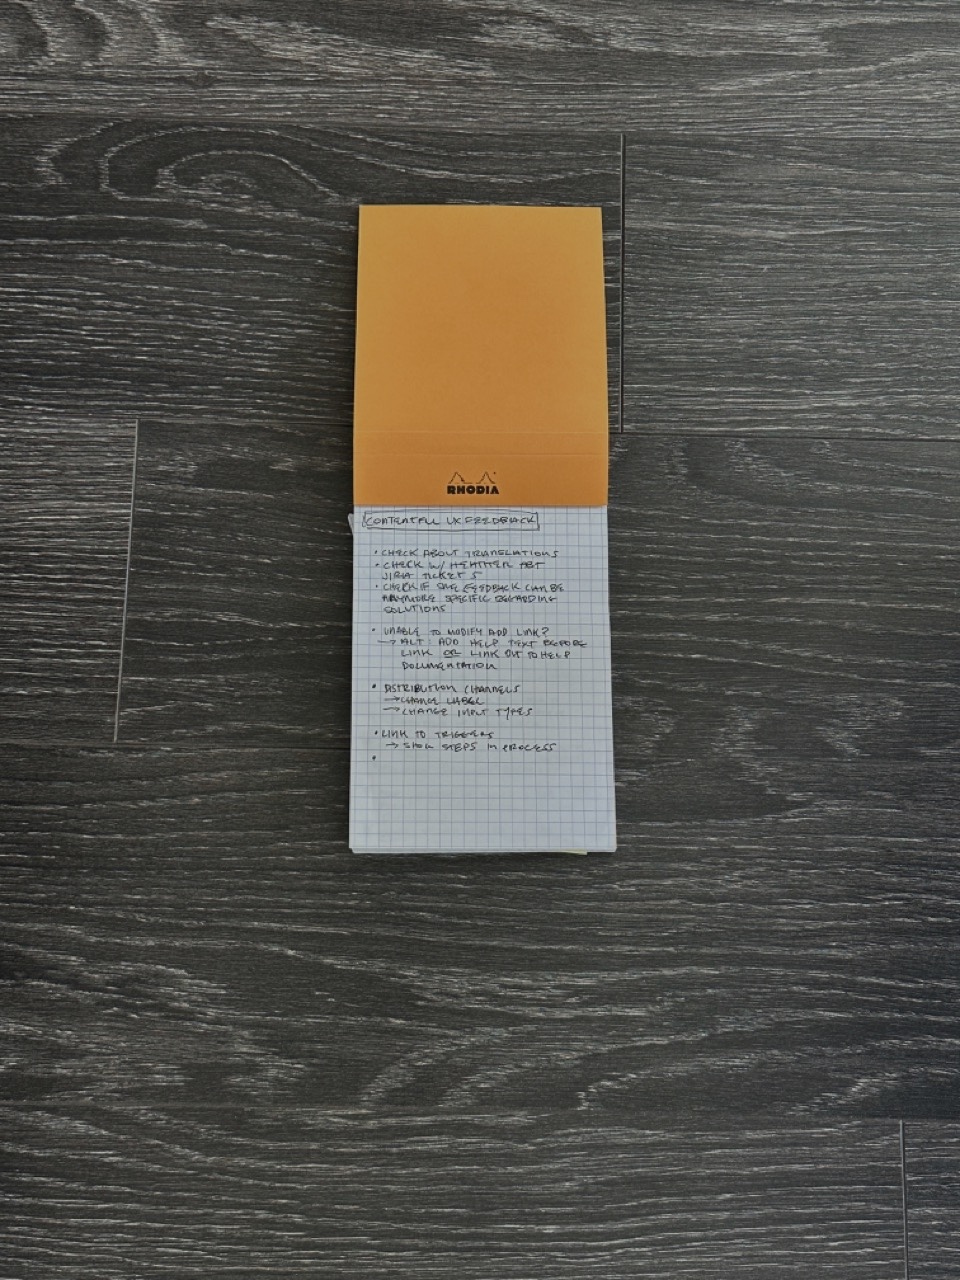 RHODIA
CONTENTFUL UX FEEDBACK
• CHECK ABOUT TRANSLATIONS
• CHECK W/ HEATHER ABT
JIRA TICKETS
• CHECK IF SME FEEDBACK CAN BE
ANYMORE SPECIFIC REGARDING
SOLUTIONS
• UNABLE TO MODIFY ADD LINK?
→ ALT: ADD HELP TEXT BEFORE
LINK OR LINK OUT TO HELP
DOCUMENTATION
• DISTRIBUTION CHANNELS
→ CHANGE LABEL
→ CHANGE INPUT TYPES
• LINK TO TRIGGERS
→ SHOW STEPS IN PROCESS
•